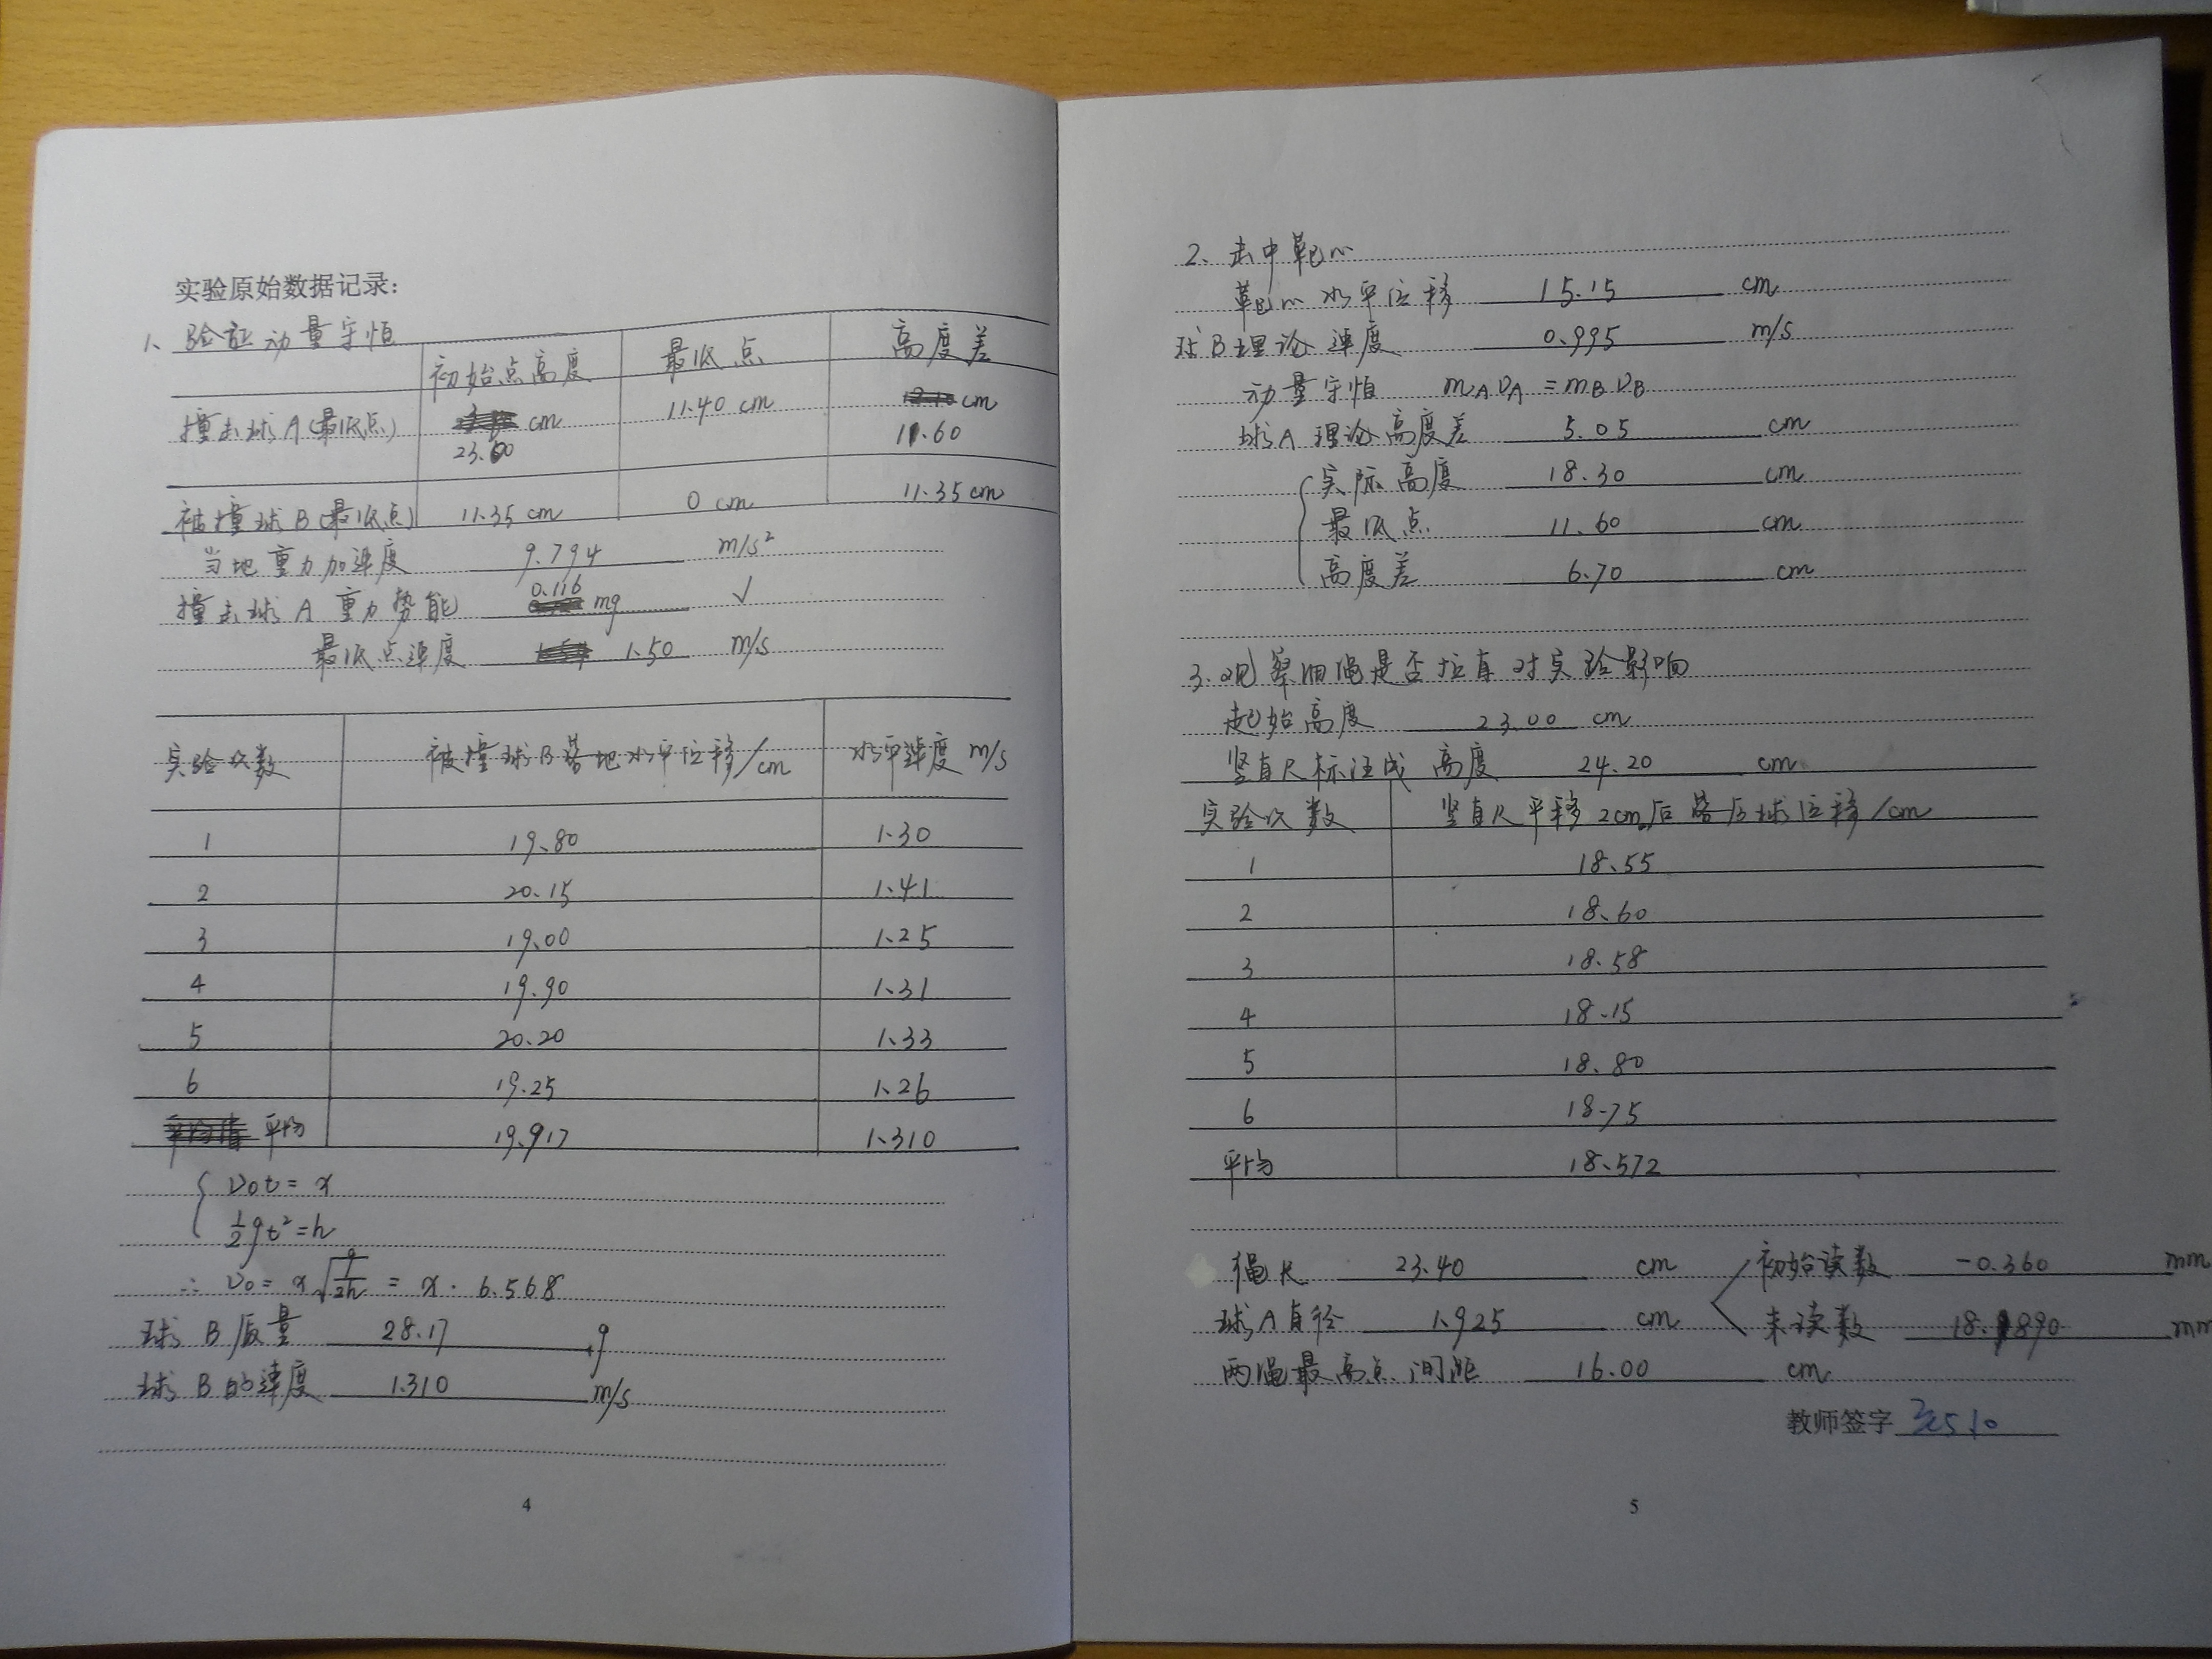 实验原始数据记录:
1、验证动量守恒
初始点高度 最低点 高度差
撞击球A(最低点) cm 11.40 cm cm
23.00 11.60
被撞球B(最低点) 11.35 cm 0 cm 11.35 cm
当地重力加速度 9.794 m/s²
撞击球A重力势能 0.116 mg √
最低点速度 1.50 m/s
实验次数 被撞球B落地水平位移/cm 水平速度 m/s
1 19.80 1.30
2 20.15 1.41
3 19.00 1.25
4 19.90 1.31
5 20.20 1.33
6 19.25 1.26
平均 19.917 1.310
{ v₀t = x
½gt² = h
∴ v₀ = x√(g/2h) = x · 6.568
球B质量 28.17 g
球B的速度 1.310 m/s
4
2、击中靶心
靶心水平位移 15.15 cm
球B理论速度 0.995 m/s
动量守恒 mAvA = mBvB
球A理论高度差 5.05 cm
{ 实际高度 18.30 cm
最低点 11.60 cm
高度差 6.70 cm
3.观察细绳是否拉直对实验影响
起始高度 23.00 cm
竖直尺标注成高度 24.20 cm
实验次数 竖直尺平移2cm后落后球位移/cm
1 18.55
2 18.60
3 18.58
4 18.15
5 18.80
6 18.75
平均 18.572
绳长 23.40 cm 初始读数 -0.360 mm
球A直径 1.925 cm 末读数 18.890 mm
两绳最高点间距 16.00 cm
教师签字
5